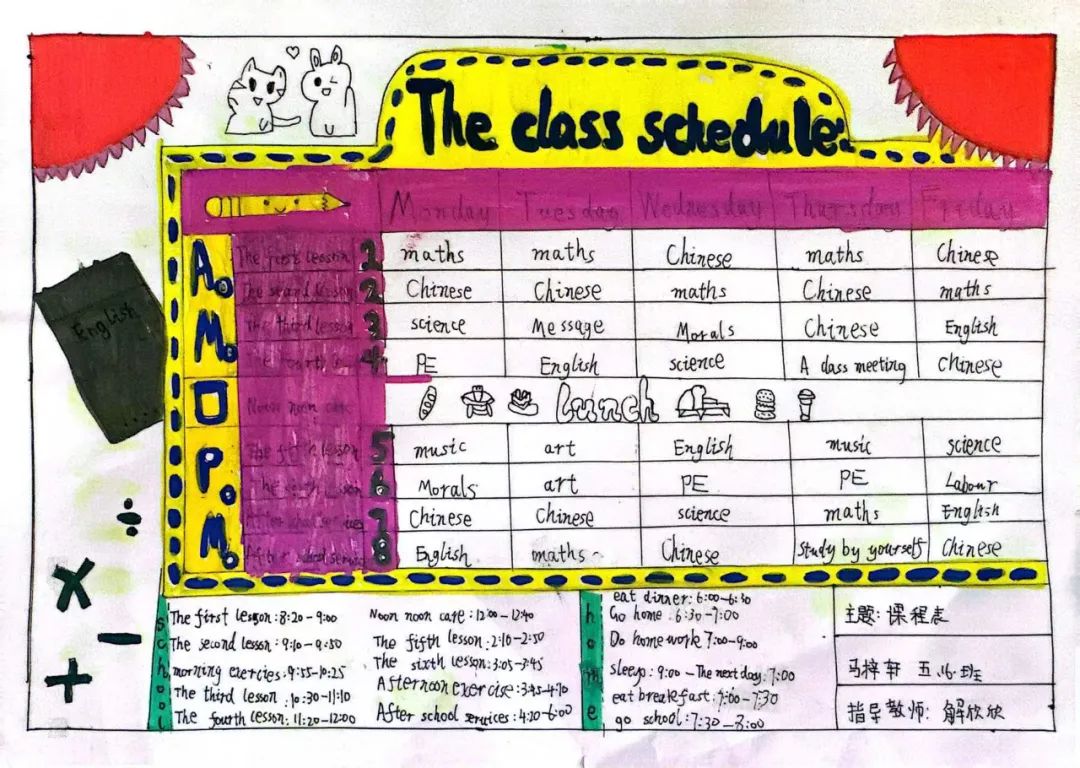 The class schedule:
Monday Tuesday Wednesday Thursday Friday
A.M.
The first lesson 1 maths maths Chinese maths Chinese
The second lesson 2 Chinese Chinese maths Chinese maths
The third lesson 3 science Message Morals Chinese English
The fourth 4 PE English science A class meeting Chinese
Noon noon care Lunch
P.M.
The lesson 5 music art English music science
The 6 Morals art PE PE Labour
After services 7 Chinese Chinese science maths English
After service 8 English maths Chinese Study by yourself Chinese
English
÷
×
−
+
school
The first lesson: 8:20-9:00
The second lesson: 9:10-9:50
morning exercies: 9:55-10:25
The third lesson: 10:30-11:10
The fourth lesson: 11:20-12:00
Noon noon care: 12:00-12:40
The fifth lesson: 2:10-2:50
The sixth lesson: 3:05-3:45
Afternoon exercise: 3:45-4:10
After school services: 4:10-6:00
home
eat dinner: 6:00-6:30
Go home: 6:30-7:00
Do homework 7:00-9:00
sleep: 9:00-The next day: 7:00
eat breakfast: 7:00-7:30
go school: 7:30-8:00
主题: 课程表
马梓轩 五.16.班
指导教师: 解欣欣